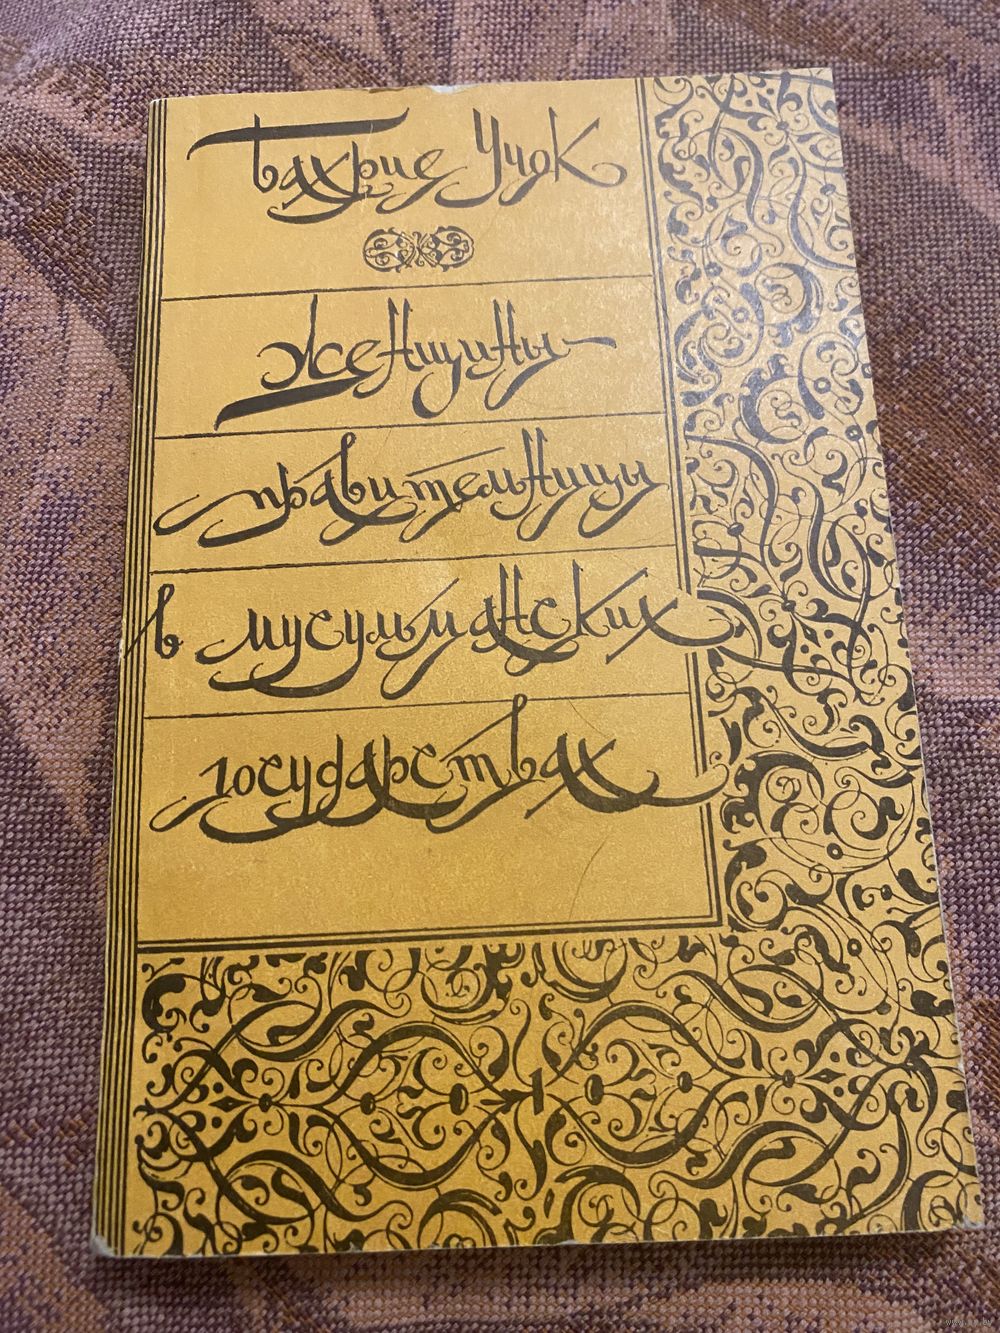 Бахрие Учок
Женщины-
правительницы
в мусульманских
государствах
www.ay.by